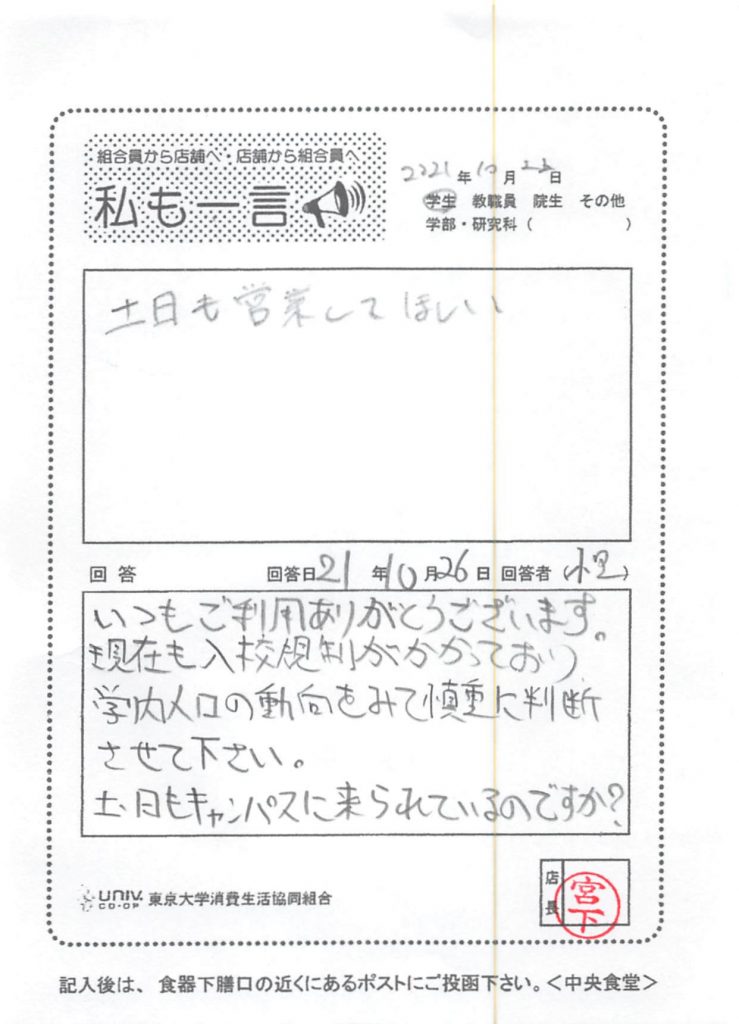 組合員から店舗へ・店舗から組合員へ
私も一言
2021年10月22日
学生 教職員 院生 その他
学部・研究科（　　　　　）
土日も営業してほしい
回答 回答日21年10月26日 回答者（小里）
いつもご利用ありがとうございます。
現在も入校規制がかかっており
学内人口の動向をみて慎重に判断
させて下さい。
土・日もキャンパスに来られているのですか?
UNIV. CO-OP 東京大学消費生活協同組合
店長
宮下
記入後は、食器下膳口の近くにあるポストにご投函下さい。＜中央食堂＞